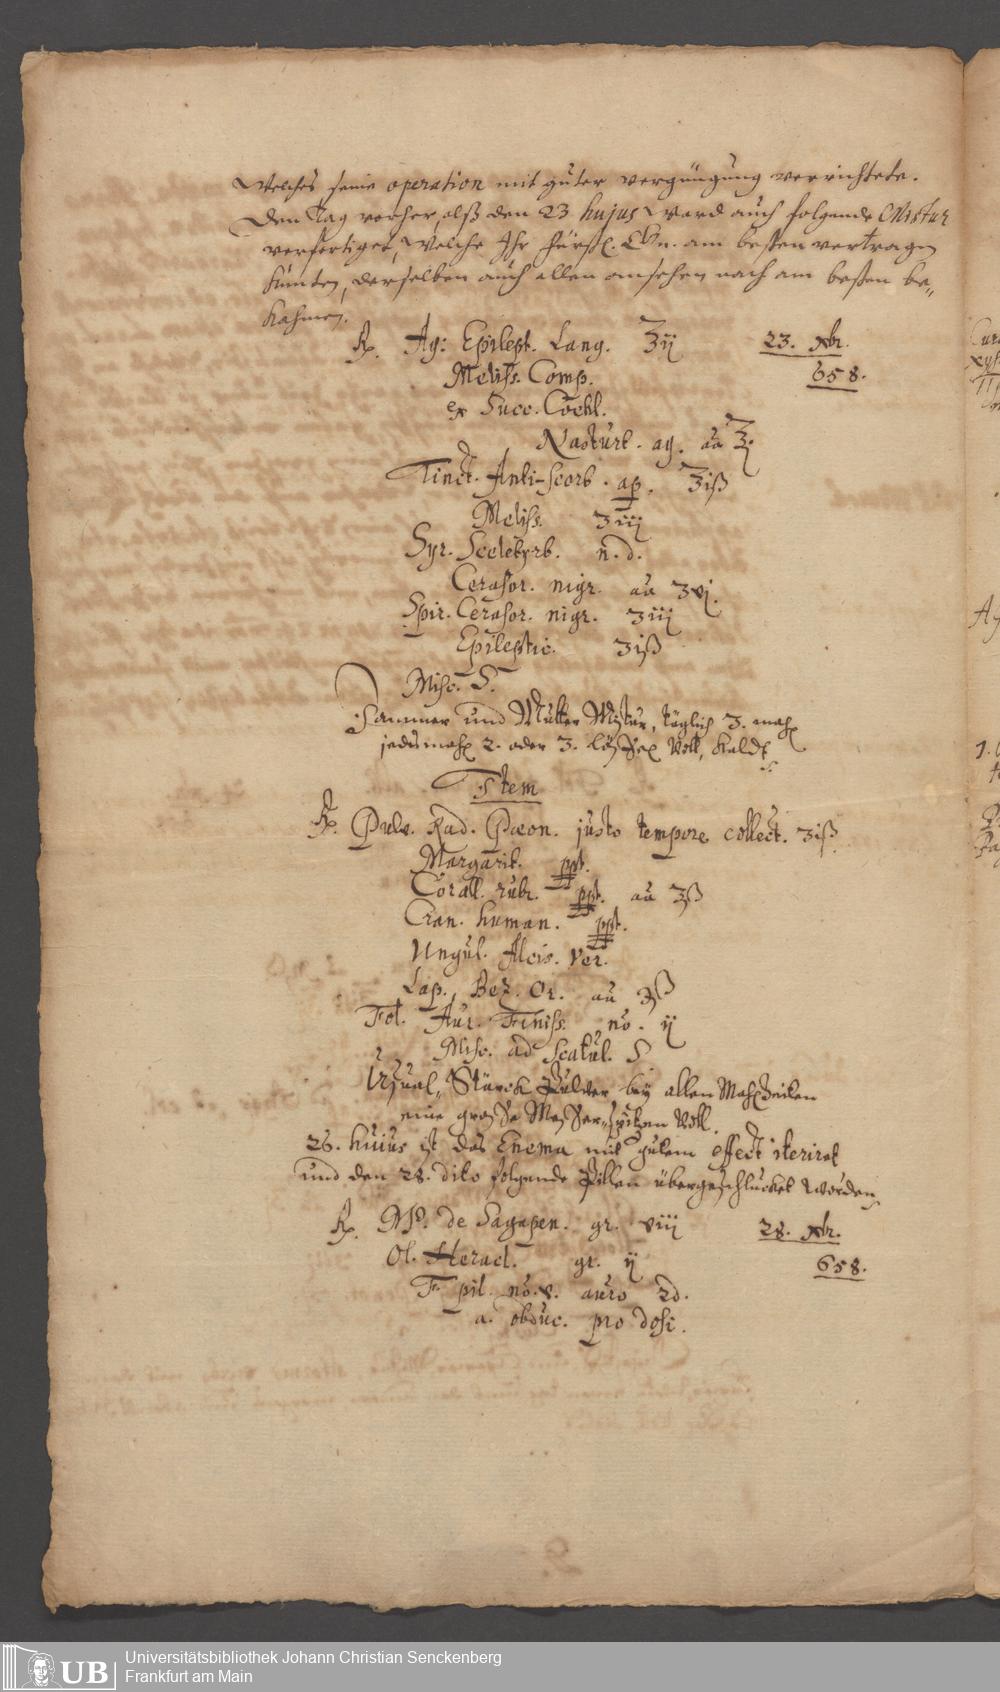 Welches seine operation mit guter vergnügung verrichtete.
Den Tag vorher, alß den 23 hujus ward auch folgende Mixtur
verfertiget, Welche Ihr Fürstl. Gn. am besten vertragen
künten, derselben auch allen ansehen nach am besten be-
kahmen.
℞. Aq: Epilept. Lang. ℥ij 23. Xbr.
Meliss. Comp. 658.
ex Succ. Cochl.
Nasturt. aq. aa ℥j
Tinct. Anti-Scorb. ap. ℥iß
Meliss. ʒiij
Syr. Scelotyrb. n. d.
Cerasor. nigr. aa ʒvj.
Spir. Cerasor. nigr. ʒiij
Epileptic. ʒiß
Misc. S.
Jammer und Mutter Mixtur, täglich 3. mahl
jedesmahl 2. oder 3. löffel Voll, Kaldt
Item
℞. Pulv. Rad. Pæon. justo tempore collect. ʒiß
Margarit. ppt.
Corall. rubr. ppt. aa ʒß
Cran. human. ppt.
Ungul. Alcis. Ver.
Lap. Bez. Or. aa ℈ß
Fol. Aur. Finiss. no. ij
Misc. ad Scatul. S
Stärck Pulver bey allen Mahlzeiten
eine grosse Messer-spitzen Voll.
26. huius ist das Enema mit gutem effect iterirt
und den 28. dito folgende Pillen übergeschlucket worden
℞. Ms. de Sagapen. gr. viij 28. Xbr.
Ol. Heracl. gr. ij 658.
F. pil. no. v. auro
a. obduc. pro dosi.
Universitätsbibliothek Johann Christian Senckenberg
UB
Frankfurt am Main